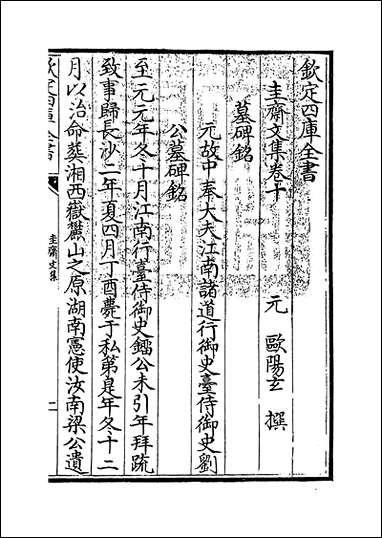 欽定四庫全書
圭齋文集卷十
元　歐陽玄　撰
墓碑銘
元故中奉大夫江南諸道行御史臺侍御史劉
公墓碑銘
至元元年冬十月江南行臺侍御史鐂公未引年拜疏
致事歸長沙二年夏四月丁酉薨于私第是年冬十二
月以治命葬湘西嶽麓山之原湖南憲使汝南梁公遺
圭齋文集